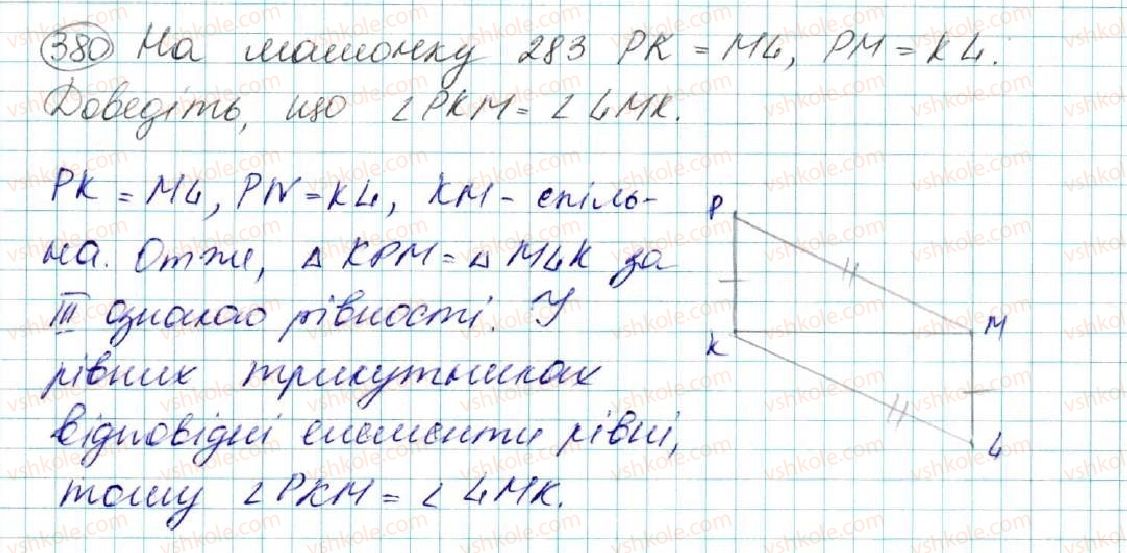 380 На малюнку 283 PK = M4, PM = K4.
Доведіть, що ∠PKM = ∠4MK.
PK = M4, PN = K4, KM - спіль-
на. Отже, △ KPM = △ M4K за
III ознакою рівності. У
рівних трикутниках
відповідні елементи рівні,
тому ∠PKM = ∠4MK.
P
K
M
4
vshkole.com